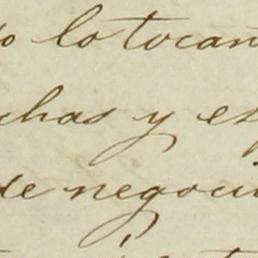 o lo tocan
chas y es
de negoci